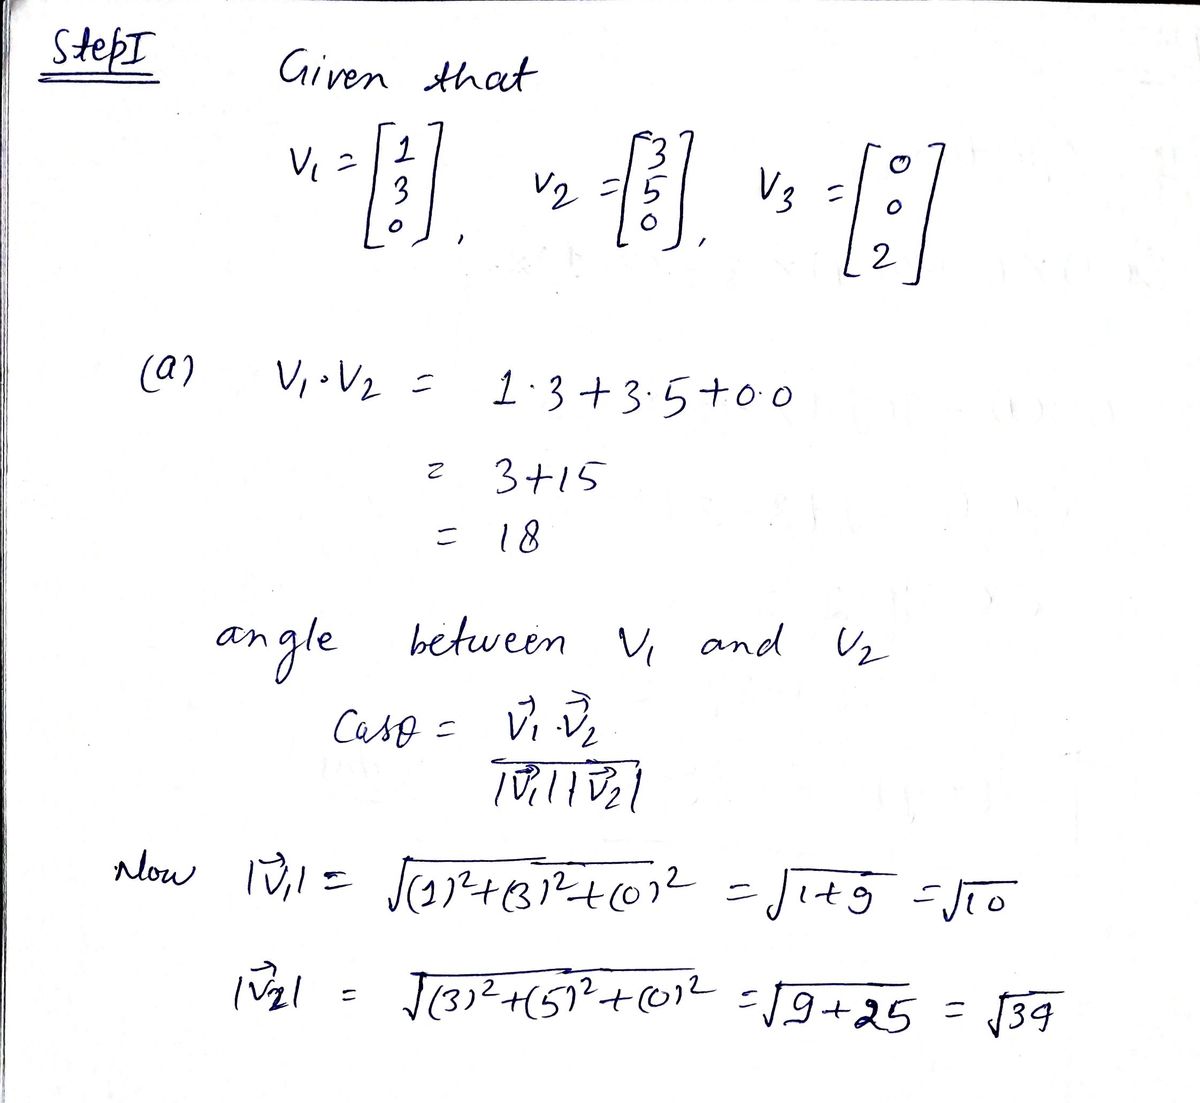 StepI
Given that
V₁ = [1 3 0], V₂ = [3 5 0], V₃ = [0 0 2]
(a) V₁·V₂ = 1·3+3·5+0·0
= 3+15
= 18
angle between V₁ and V₂
Casθ = V⃗₁·V⃗₂ / |V⃗₁||V⃗₂|
Now |V⃗₁| = √(1)²+(3)²+(0)² = √1+9 = √10
|V⃗₂| = √(3)²+(5)²+(0)² = √9+25 = √34